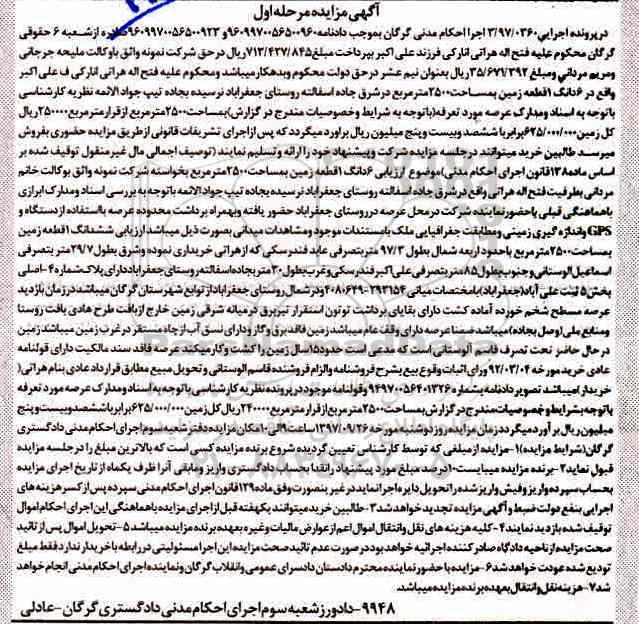 آگهی مزایده مرحله اول
در پرونده اجرایی ۳/۹۷/۰۳۶۰ اجرا احکام مدنی گرگان بموجب دادنامه ۹۶۰۹۹۷۰۰۵۶۵۰۰۹۶۰ و ۹۶۰۹۹۷۰۰۵۶۵۰۰۹۲۳ صادره از شعبه ۶ حقوقی
گرگان محکوم علیه فتح اله هراتی انارکی فرزند علی اکبر پرداخت مبلغ ۷۱۳/۴۲۷/۸۴۵ ریال در حق شرکت نمونه وثاق باوکالت ملیحه جرجانی
ومریم مردانی ومبلغ ۳۵/۶۷۱/۳۹۲ ریال بعنوان نیم عشر در حق دولت محکوم وبدهکار میباشد و محکوم علیه فتح اله هراتی انارکی ف علی اکبر
واقع در ۶دانگ ۱قطعه زمین بمساحت ۲۵۰۰متر مربع در شرق جاده آسفالته روستای جعفراباد نرسیده بجاده تیپ جواد الائمه نظریه کارشناسی
باتوجه به اسناد ومدارک عرصه مورد تعرفه(باتوجه به شرایط وخصوصیات مندرج در گزارش)بمساحت ۲۵۰۰متر مربع از قرار متر مربع ۲۵۰۰۰۰ریال
کل زمین ۶۲۵/۰۰۰/۰۰۰برابر با ششصد وبیست وپنج میلیون ریال براورد میگردد که پس ازاجرای تشریفات قانونی از طریق مزایده حضوری بفروش
میرسد طالبین خرید میتوانند در جلسه مزایده شرکت وپیشنهاد خود را ارائه وتسلیم نمایند (توصیف اجمالی مال غیر منقول توقیف شده بر
اساس ماده ۱۳۸قانون اجرای احکام مدنی)موضوع ارزیابی ۶دانگ ۱قطعه زمین بمساحت ۲۵۰۰متر مربع بخواسته شرکت نمونه وثاق بوکالت خانم
مردانی بطرفیت فتح اله هراتی واقع در شرق جاده اسفالته روستای جعفراباد نرسیده بجاده تیپ جواد الائمه باتوجه به بررسی اسناد ومدارک ابرازی
باهماهنگی قبلی باحضور نماینده شرکت در محل عرصه در روستای جعفراباد حضور یافته وبهمراه برداشت محدوده عرصه بااستفاده از دستگاه و
GPS واندازه گیری زمینی ومطابقت جغرافیایی ملک بامستندات موجود ومشاهدات میدانی بصورت ذیل میباشد ارزیابی ششدانگ ۱قطعه زمین
بمساحت ۲۵۰۰متر مربع باحدود اربعه شمال بطول ۹۷/۳ متر بتصرفی عابد فندرسکی که از هراتی خریداری نموده وشرق بطول ۲۹/۷متر بتصرفی
اسماعیل الوستانی وجنوب بطول ۸۵متر بتصرفی علی اکبر فندرسکی وغرب بطول ۳۰متر بجاده اسفالته روستای جعفراباد دارای پلاک شماره ۴-اصلی
بخش ۵ ثبت علی آباد (جعفراباد)بامختصات میانی ۲۹۳۱۵۴-۴۰۸۰۶۲۹ودر شمال روستای جعفراباد از توابع شهرستان گرگان میباشد در زمان بازدید
عرصه مسطح شخم خورده آماده کشت دارای بقایای برداشت توتون استقرار تیر برق در میانه شرقی زمین خارج از بافت طرح هادی بافت روستا
ومنابع ملی(وصل بجاده)میباشد ضمنا عرصه دارای وقف عام میباشد زمین فاقد برق وگاز و دارای نسق آب از چاه مستقر در غرب زمین میباشد زمین
در حال حاضر تحت تصرف قاسم آلوستانی است که مدعی است حدود ۱۵سال زمین را کشت وکار میکند عرصه فاقد سند مالکیت دارای قولنامه
عادی خرید مورخه ۹۲/۰۳/۰۴ ورای اثبات وقوع بیع بشرح فروشنامه والزام فروشنده قاسم الوستانی و تحویل مبیع مطابق قرارداد عادی بنام هراتی(
خریدار)میباشد تصویر دادنامه بشماره ۹۴۹۷۰۰۵۶۴۰۱۳۲۶ وقولنامه موجود در پرونده نظریه کارشناسی باتوجه به اسناد ومدارک عرصه مورد تعرفه
باتوجه بشرایط وخصوصیات مندرج در گزارش بمساحت ۲۵۰۰متر مربع از قرار متر مربع ۲۴۰۰۰۰ریال کل زمین ۶۲۵/۰۰۰/۰۰۰برابر با ششصد وبیست وپنج
میلیون ریال بر آورد میگردد زمان مزایده روز دوشنبه مورخه ۱۳۹۷/۰۹/۲۶ ساعت ۹الی ۱۰ مکان مزایده دفتر شعبه سوم اجرای احکام مدنی دادگستری
گرگان(شرایط مزایده)۱-مزایده از مبلغی که توسط کارشناس تعیین گردیده شروع برنده مزایده کسی است که بالاترین مبلغ را در جلسه مزایده
قبول نماید۲-برنده مزایده میبایست ۱۰درصد مبلغ مورد پیشنهاد را نقدا بحساب دادگستری واریز ومابقی آنرا ظرف یکماه از تاریخ اجرای مزایده
بحساب سپرده واریز وفیش واریز شده را تحویل دایره اجرا نماید در غیر ینصورت وفق ماده ۱۲۹قانون اجرای احکام مدنی سپرده پس از کسر هزینه های
اجرایی بنفع دولت ضبط و آگهی مزایده تجدید خواهد شد۳-طالبین خرید میتوانند یکهفته قبل از اجرای مزایده باهماهنگی این اجرای احکام اموال
توقیف شده بازدید نمایند۴-کلیه هزینه های نقل وانتقال اموال اعم از عوارض مالیات وغیره بعهده برنده مزایده میباشد ۵-تحویل اموال پس از تائید
صحت مزایده از ناحیه دادگاه صادر کننده اجرائیه خواهد بود در صورت عدم تائید صحت مزایده این اجرا مسئولیتی در رابطه باخریدار ندارد فقط مبلغ
تودیع شده عودت خواهد شد ۶-مزایده با حضور نماینده محترم دادستان دادسرای عمومی وانقلاب گرگان ونماینده اجرای احکام مدنی انجام خواهد
شد ۷-هزینه نقل وانتقال بعهده برنده مزایده میباشد.
۹۹۴۸-دادورز شعبه سوم اجرای احکام مدنی دادگستری گرگان-عادلی